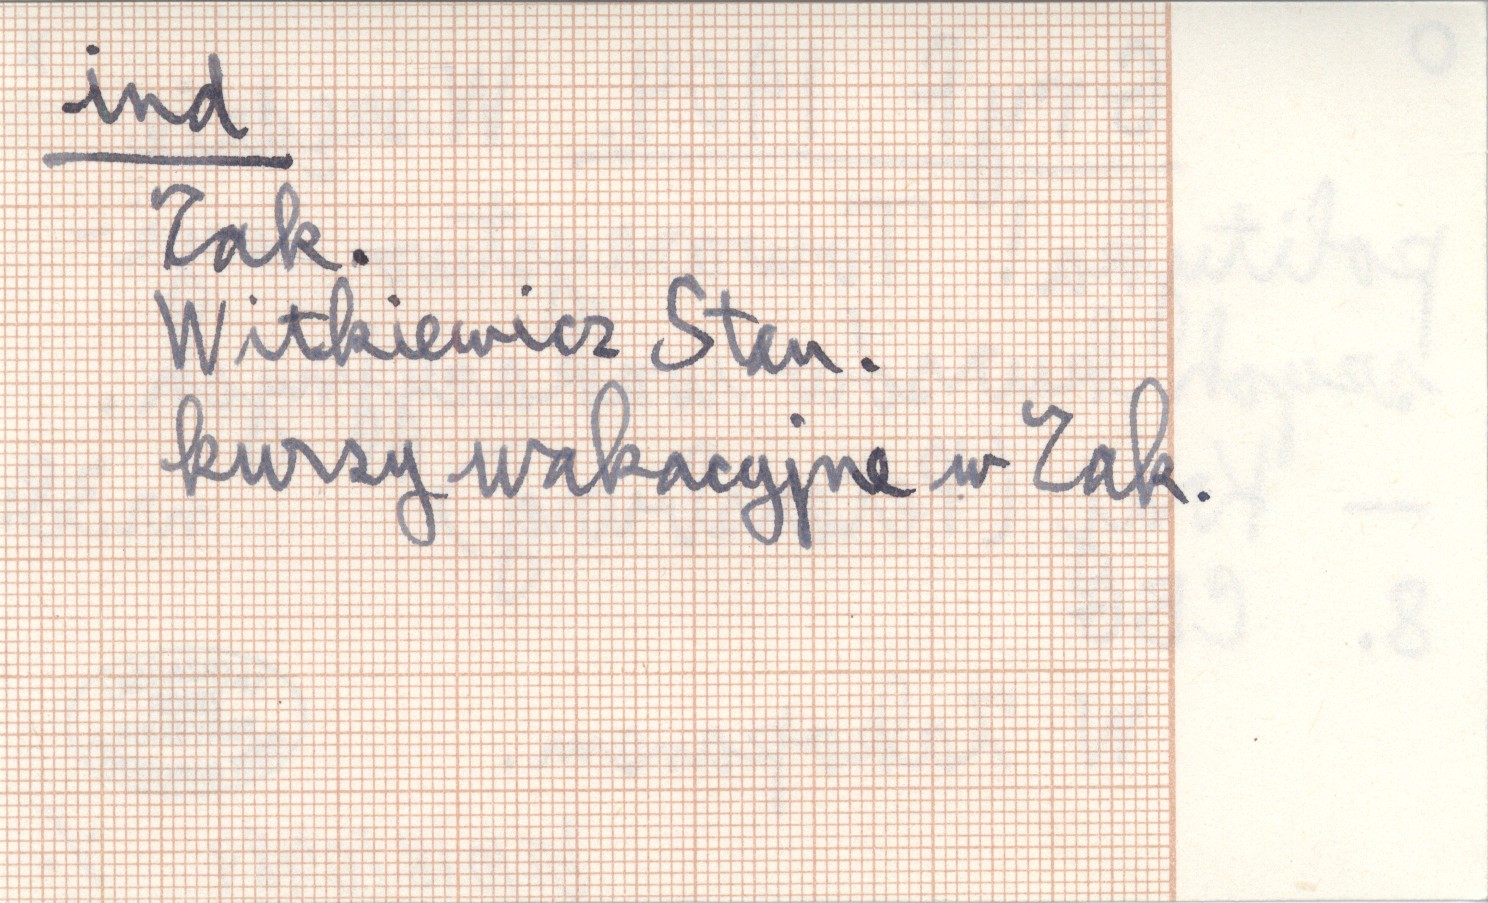 ind
Zak.
Witkiewicz Stan.
kursy wakacyjne w Zak.